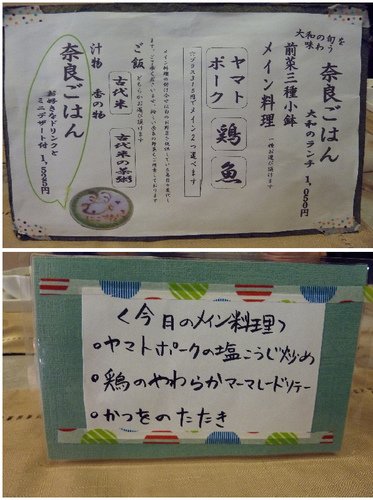 大和の旬を
味わう
奈良ごはん
大和のランチ 1,050円
前菜三種小鉢
メイン料理
一種お選び頂けます
ヤマト
ポーク
鶏
魚
☆プラス315円でメイン2つ選べます
ご飯
どちらかお選び頂けます
古代米
古代米の茶粥
汁物 香の物
奈良ごはん
お好きなドリンクと
ミニデザート付 1,525円
＜今日のメイン料理＞
○ヤマトポークの塩こうじ炒め
○鶏のやわらかマーマレードソテー
○かつをのたたき